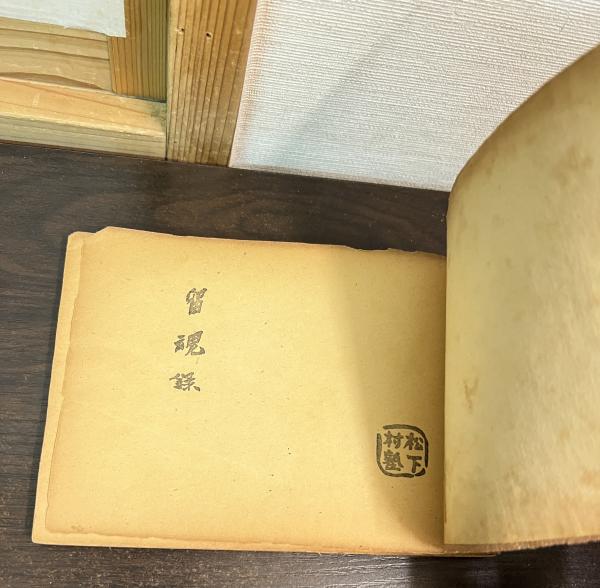 留魂録
松下
村塾